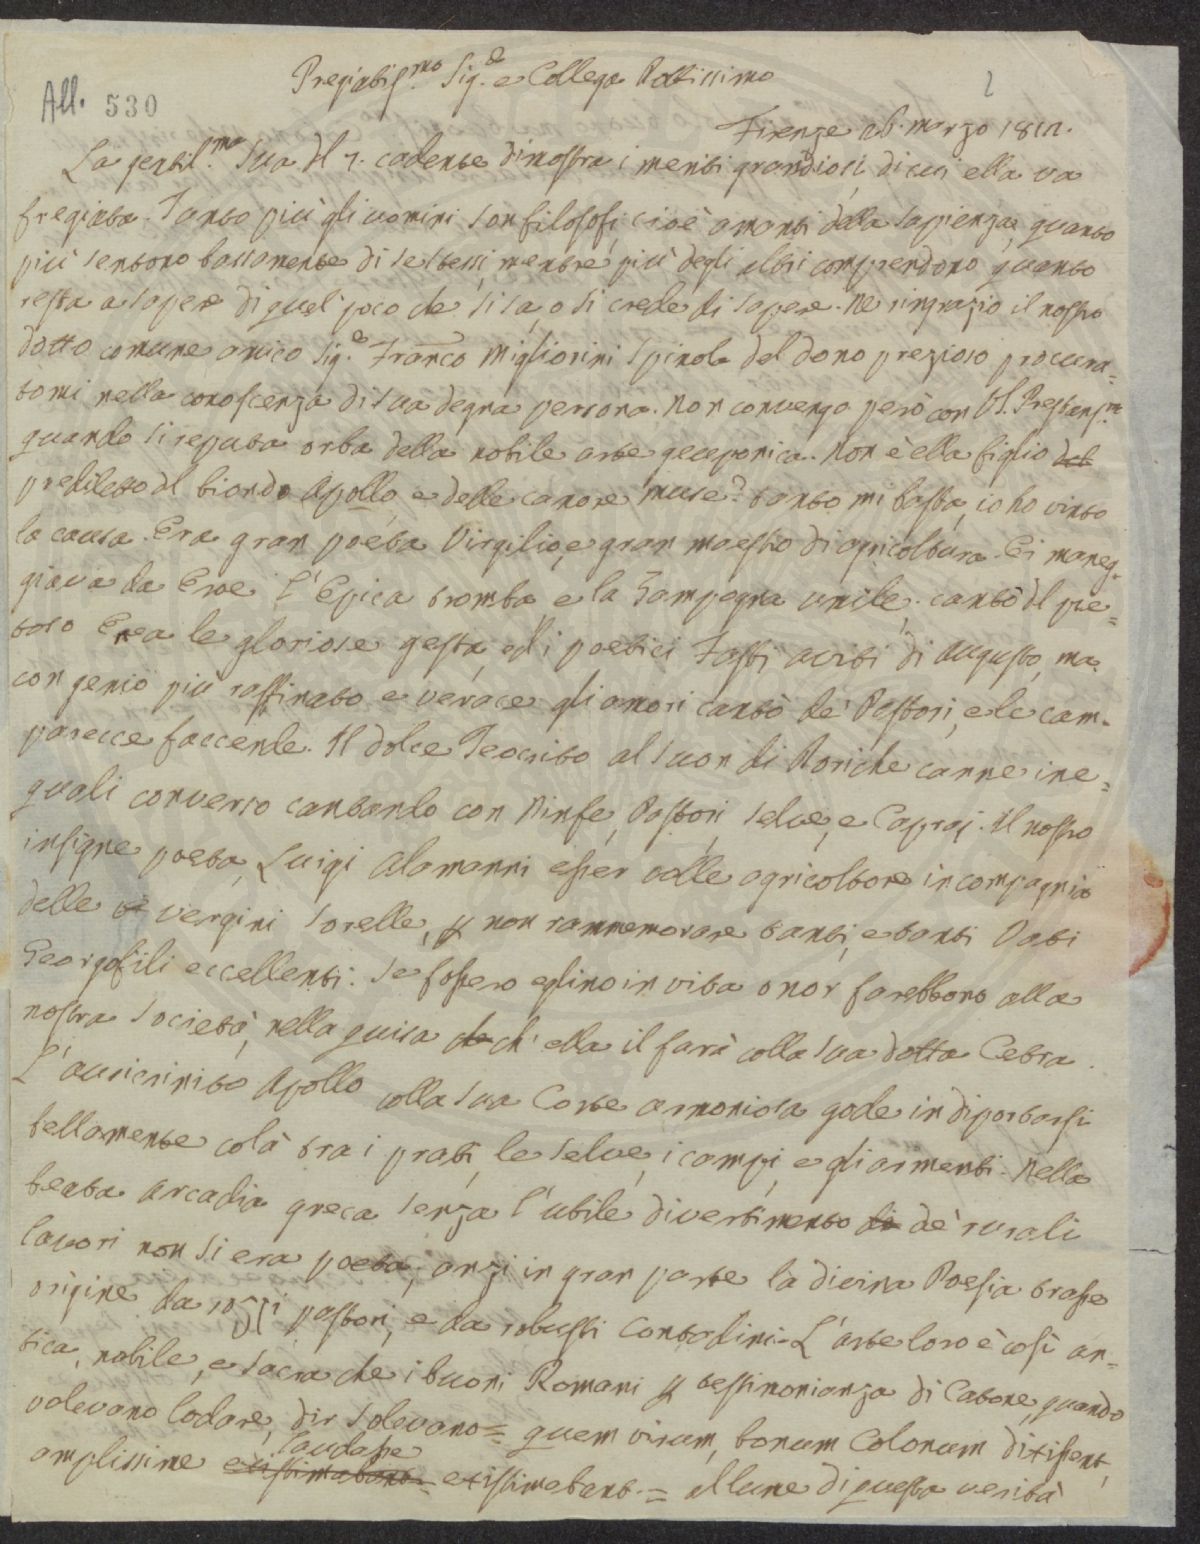 Pregiatis.mo Sig.e e Collega Dottissimo
All. 530
2
Firenze 26. marzo 1812.
La gentil.ma Sua del 7. cadente dimostra i meriti grandiosi, di cui ella va
fregiata. Tanto più gli uomini son filosofi, cioè amanti della sapienza, quanto
più sentono bassamente di se stessi, mentre più degli altri comprendono quanto
resta a sapere di quel poco che si sa, o si crede di sapere. Ne ringrazio il nostro
dotto comune amico Sig.e Franco Migliorini Spinola del dono prezioso procura=
tomi nella conoscenza di sua degna persona. Non convengo però con VS. Prestans.ma
quando si reputa orba della nobile arte geoponica. Non è ella figlio del
prediletto del biondo Apollo, e delle canore muse? tanto mi basta, io ho vinto
la causa. Era gran poeta Virgilio, e gran maestro di agricoltura. Ei maneg=
giava da Eroe l'Epica tromba e la Zampogna umile; cantò del pie=
toso Enea le gloriose gesta, ed i poetici Fasti aviti di Augusto, ma
con genio più raffinato e verace gli amori cantò de' Pastori, e le cam=
parecce faccende. Il dolce Teocrito al suon di Doriche canne ine=
guali conversò cantando con Ninfe, Pastori, selve, e Capraj. Il nostro
insigne poeta Luigi Alamanni esser volle agricoltore in compagnia
delle vergini sorelle, p non rammemorare tanti, e tanti Vati
Georgofili eccellenti. Se fossero eglino in vita onor farebbono alla
nostra Società, nella guisa che ch' ella il farà colla sua dotta Cetra.
L'auricrinito Apollo colla sua Corte armoniosa gode in diportarsi
bellamente colà tra i prati, le selve, i campi, e gli armenti. Nella
beata Arcadia greca senza l'utile divertimento di de' rurali
lavori non si era poeta; anzi in gran parte la divina Poesia trasse
origine da rozzi pastori, e da robusti Contadini. L'arte loro è così an=
tica, nobile, e sacra che i buoni Romani p testimonianza di Catone, quando
volevano lodare, dir solevano = quem virum, bonum Colonum dixissent,
laudasse
amplissime existimabant = existimabant. = al lume di questa verità